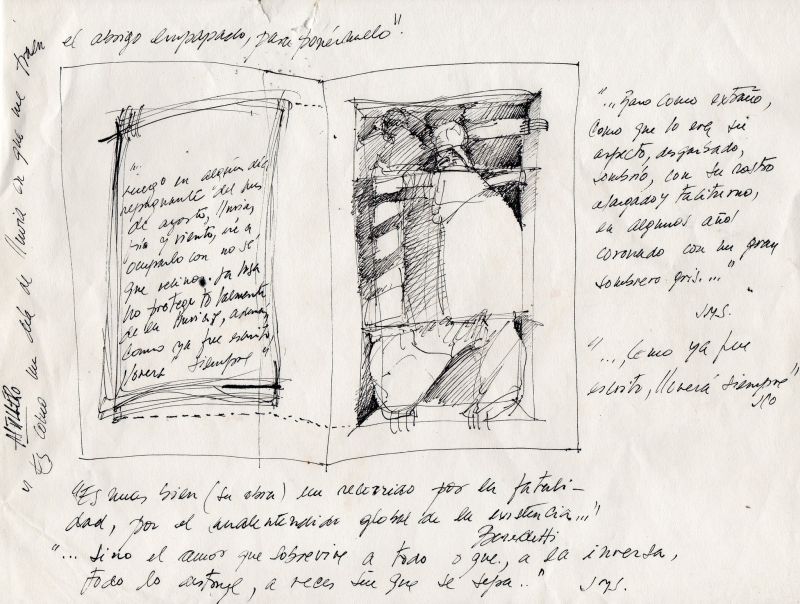 el abrigo empapado, para ponérmelo".
Es como un día de lluvia en que me traen
"...
vengo en algún del
de agosto, lluvias
frío y viento, iré a
ocuparlo con no sé
que vecinos. La losa
no protege totalmente
de la lluvia, además,
como ya fue escrito
lloverá siempre"
"... Raro como extraño,
como que lo era su
aspecto, desgarbado,
sombrío, con su rostro
alargado y taciturno,
en algunos años
coronado con un gran
sombrero gris..."
JMS.
"..., Como ya fue
escrito, lloverá siempre"
JCO
"Es mas bien (su obra) un recorrido por la fatali-
dad, por el malentendido global de la existencia..."
Benedetti
"... Sino el amor que sobrevive a todo o que, a la inversa,
todo lo destruye, a veces sin que se sepa.."
JMS.